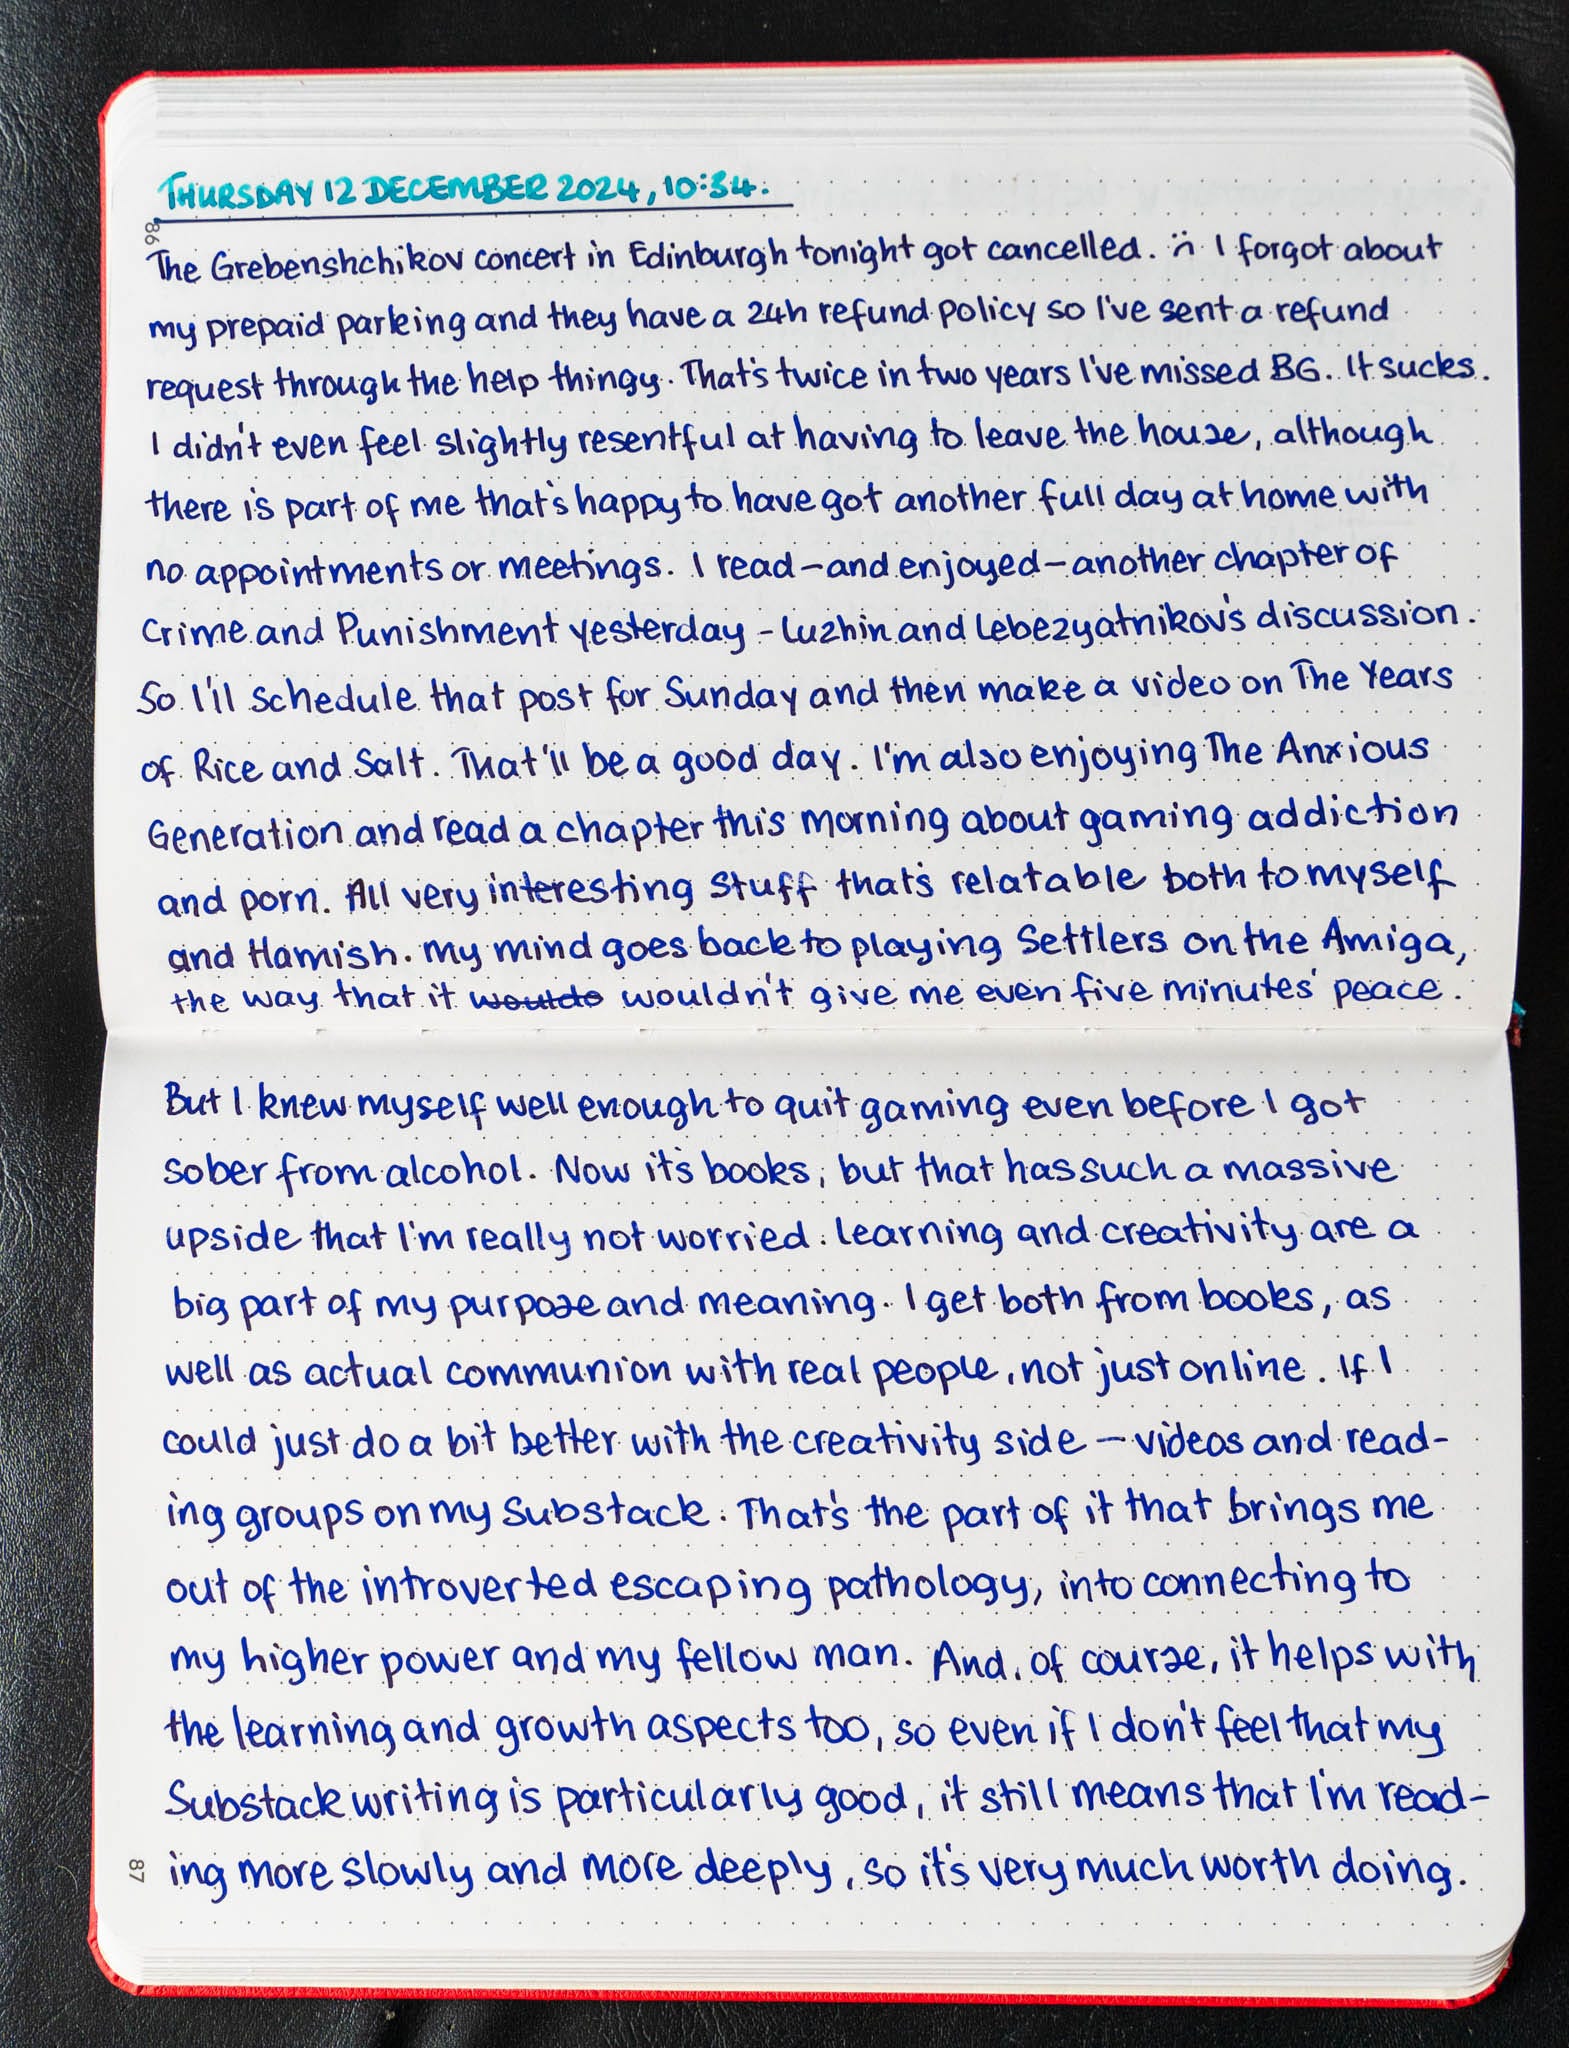 THURSDAY 12 DECEMBER 2024, 10:34.
86
The Grebenshchikov concert in Edinburgh tonight got cancelled. :( I forgot about
my prepaid parking and they have a 24h refund policy so I've sent a refund
request through the help thingy. That's twice in two years I've missed BG. It sucks.
I didn't even feel slightly resentful at having to leave the house, although
there is part of me that's happy to have got another full day at home with
no appointments or meetings. I read – and enjoyed – another chapter of
Crime and Punishment yesterday – Luzhin and Lebezyatnikov's discussion.
So I'll schedule that post for Sunday and then make a video on The Years
of Rice and Salt. That'll be a good day. I'm also enjoying The Anxious
Generation and read a chapter this morning about gaming addiction
and porn. All very interesting stuff that's relatable both to myself
and Hamish. My mind goes back to playing Settlers on the Amiga,
the way that it woulds wouldn't give me even five minutes' peace.
But I knew myself well enough to quit gaming even before I got
sober from alcohol. Now it's books, but that has such a massive
upside that I'm really not worried. Learning and creativity are a
big part of my purpose and meaning. I get both from books, as
well as actual communion with real people, not just online. If I
could just do a bit better with the creativity side – videos and read-
ing groups on my Substack. That's the part of it that brings me
out of the introverted escaping pathology, into connecting to
my higher power and my fellow man. And, of course, it helps with
the learning and growth aspects too, so even if I don't feel that my
Substack writing is particularly good, it still means that I'm read-
ing more slowly and more deeply, so it's very much worth doing.
87